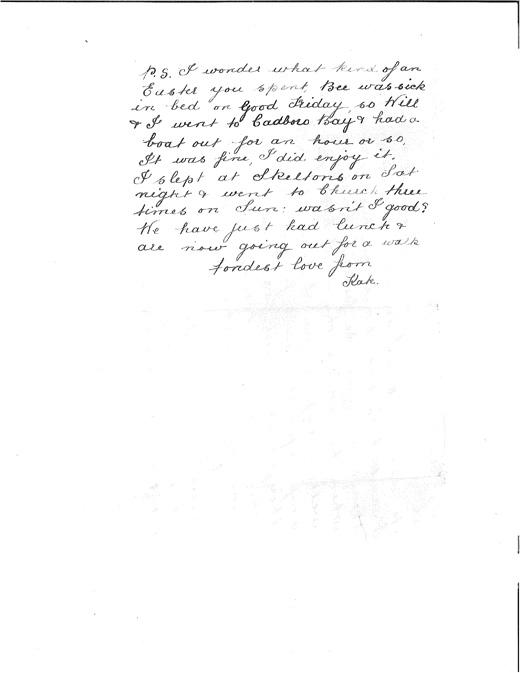 P.S. I wonder what kind of an
Easter you spent, Bee was sick
in bed on Good Friday, so Will
& I went to Cadboro Bay & had a
boat out for an hour or so.
It was fine, I did enjoy it.
I slept at Skeltons on Sat
night & went to Church three
times on Sun: wasn't I good?
We have just had lunch &
are now going out for a walk
fondest love from
Kate.